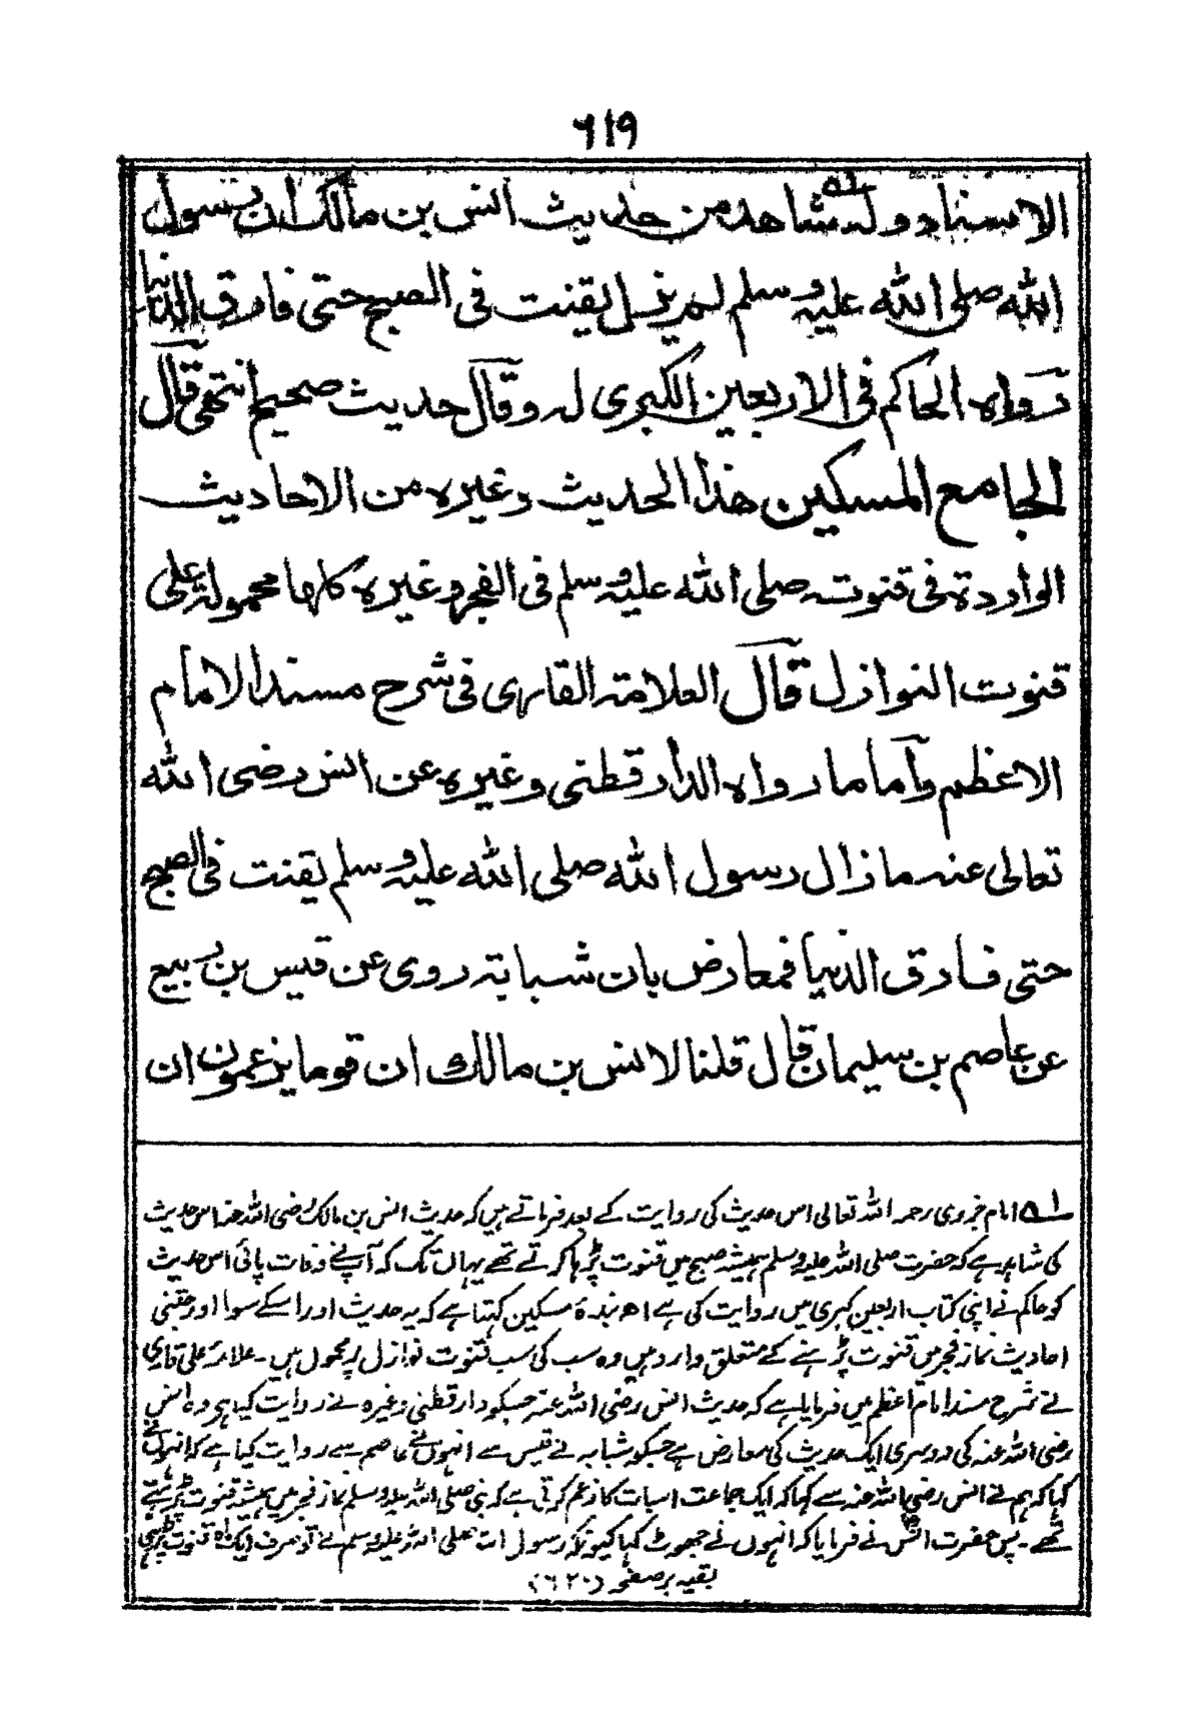 ۶۱۹
الاسناد وله شاهد من حديث انس بن مالك ان رسول
الله صلى الله عليه وسلم لم يزل يقنت فى الصبح حتى فارق الدنيا
رواه الحاكم فى الاربعين الكبرى له وقال حديث صحيح انتهى قال
الجامع المسكين هذا الحديث وغيره من الاحاديث
الواردة فى قنوته صلى الله عليه وسلم فى الفجر وغيره كلها محمولة على
قنوت النوازل قال العلامة القارى فى شرح مسند الامام
الاعظم واما ما رواه الدارقطنى وغيره عن انس رضى الله
تعالى عنه ما زال رسول الله صلى الله عليه وسلم يقنت فى الصبح
حتى فارق الدنيا فمعارض بان شبابة روى عن قيس بن ربيع
عن عاصم بن سليمان قال قلنا لانس بن مالك ان قوما يزعمون ان
۵۱ امام جزری رحمہ اللہ تعالی اس حدیث کی روایت کے بعد فرماتے ہیں کہ حدیث انس بن مالک رضی اللہ عنہ اس حدیث
کی شاہد ہے کہ حضرت صلی اللہ علیہ وسلم ہمیشہ صبح میں قنوت پڑہا کرتے تھے یہاں تک کہ آپنے وفات پائی اس حدیث
کو حاکم نے اپنی کتاب اربعین کبری میں روایت کی ہے اھ بندۂ مسکین کہتا ہے کہ یہ حدیث اور اسکے سوا اور جتنی
احادیث نماز فجر میں قنوت پڑہنے کے متعلق وارد ہیں وہ سب کی سب قنوت نوازل پر محمول ہیں۔ علامۂ علی قاری
نے شرح مسند امام اعظم میں فرمایا ہے کہ حدیث انس رضی اللہ عنہ جسکو دارقطنی وغیرہ نے روایت کیا ہے وہ انس
رضی اللہ عنہ کی دوسری ایک حدیث کی معارض ہے جسکو شبابہ نے قیس سے انہوں نے عاصم سے روایت کیا ہے کہ انہوں نے
کہا کہ ہم نے انس رضی اللہ عنہ سے کہا کہ ایک جماعت اسبات کا زعم کرتی ہے کہ نبی صلی اللہ علیہ وسلم نماز فجر میں ہمیشہ قنوت پڑہتے
تھے۔ پس حضرت انس نے فرمایا کہ انہوں نے جھوٹ کہا کیونکہ رسول اللہ صلی اللہ علیہ وسلم نے تو صرف ایک ماہ قنوت پڑہی
بقیہ بر صفحہ (۶۲۰)